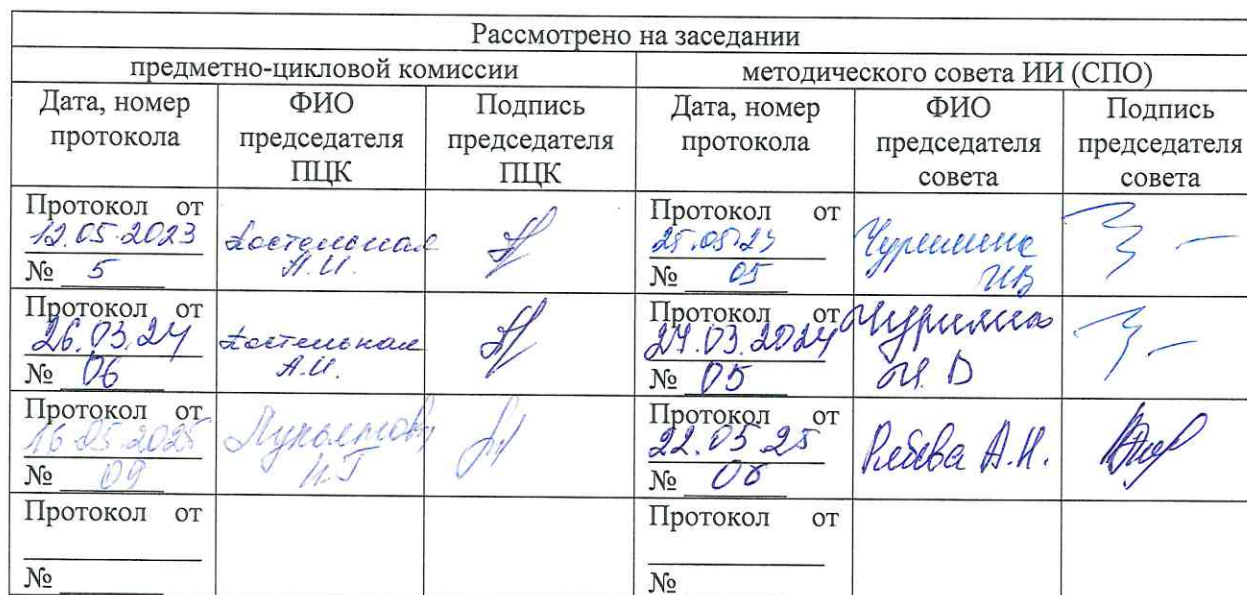 Рассмотрено на заседании
предметно-цикловой комиссии
методического совета ИИ (СПО)
Дата, номер протокола
ФИО председателя ПЦК
Подпись председателя ПЦК
Дата, номер протокола
ФИО председателя совета
Подпись председателя совета
Протокол от
12.05.2023
№ 5
А.И.
Протокол от
25.05.23
№ 05
Протокол от
26.03.24
№ 06
А.И.
Протокол от
№ 05
Протокол от
16.05.2025
№ 09
Протокол от
22.05.25
№ 06
А.Н.
Протокол от
№
Протокол от
№